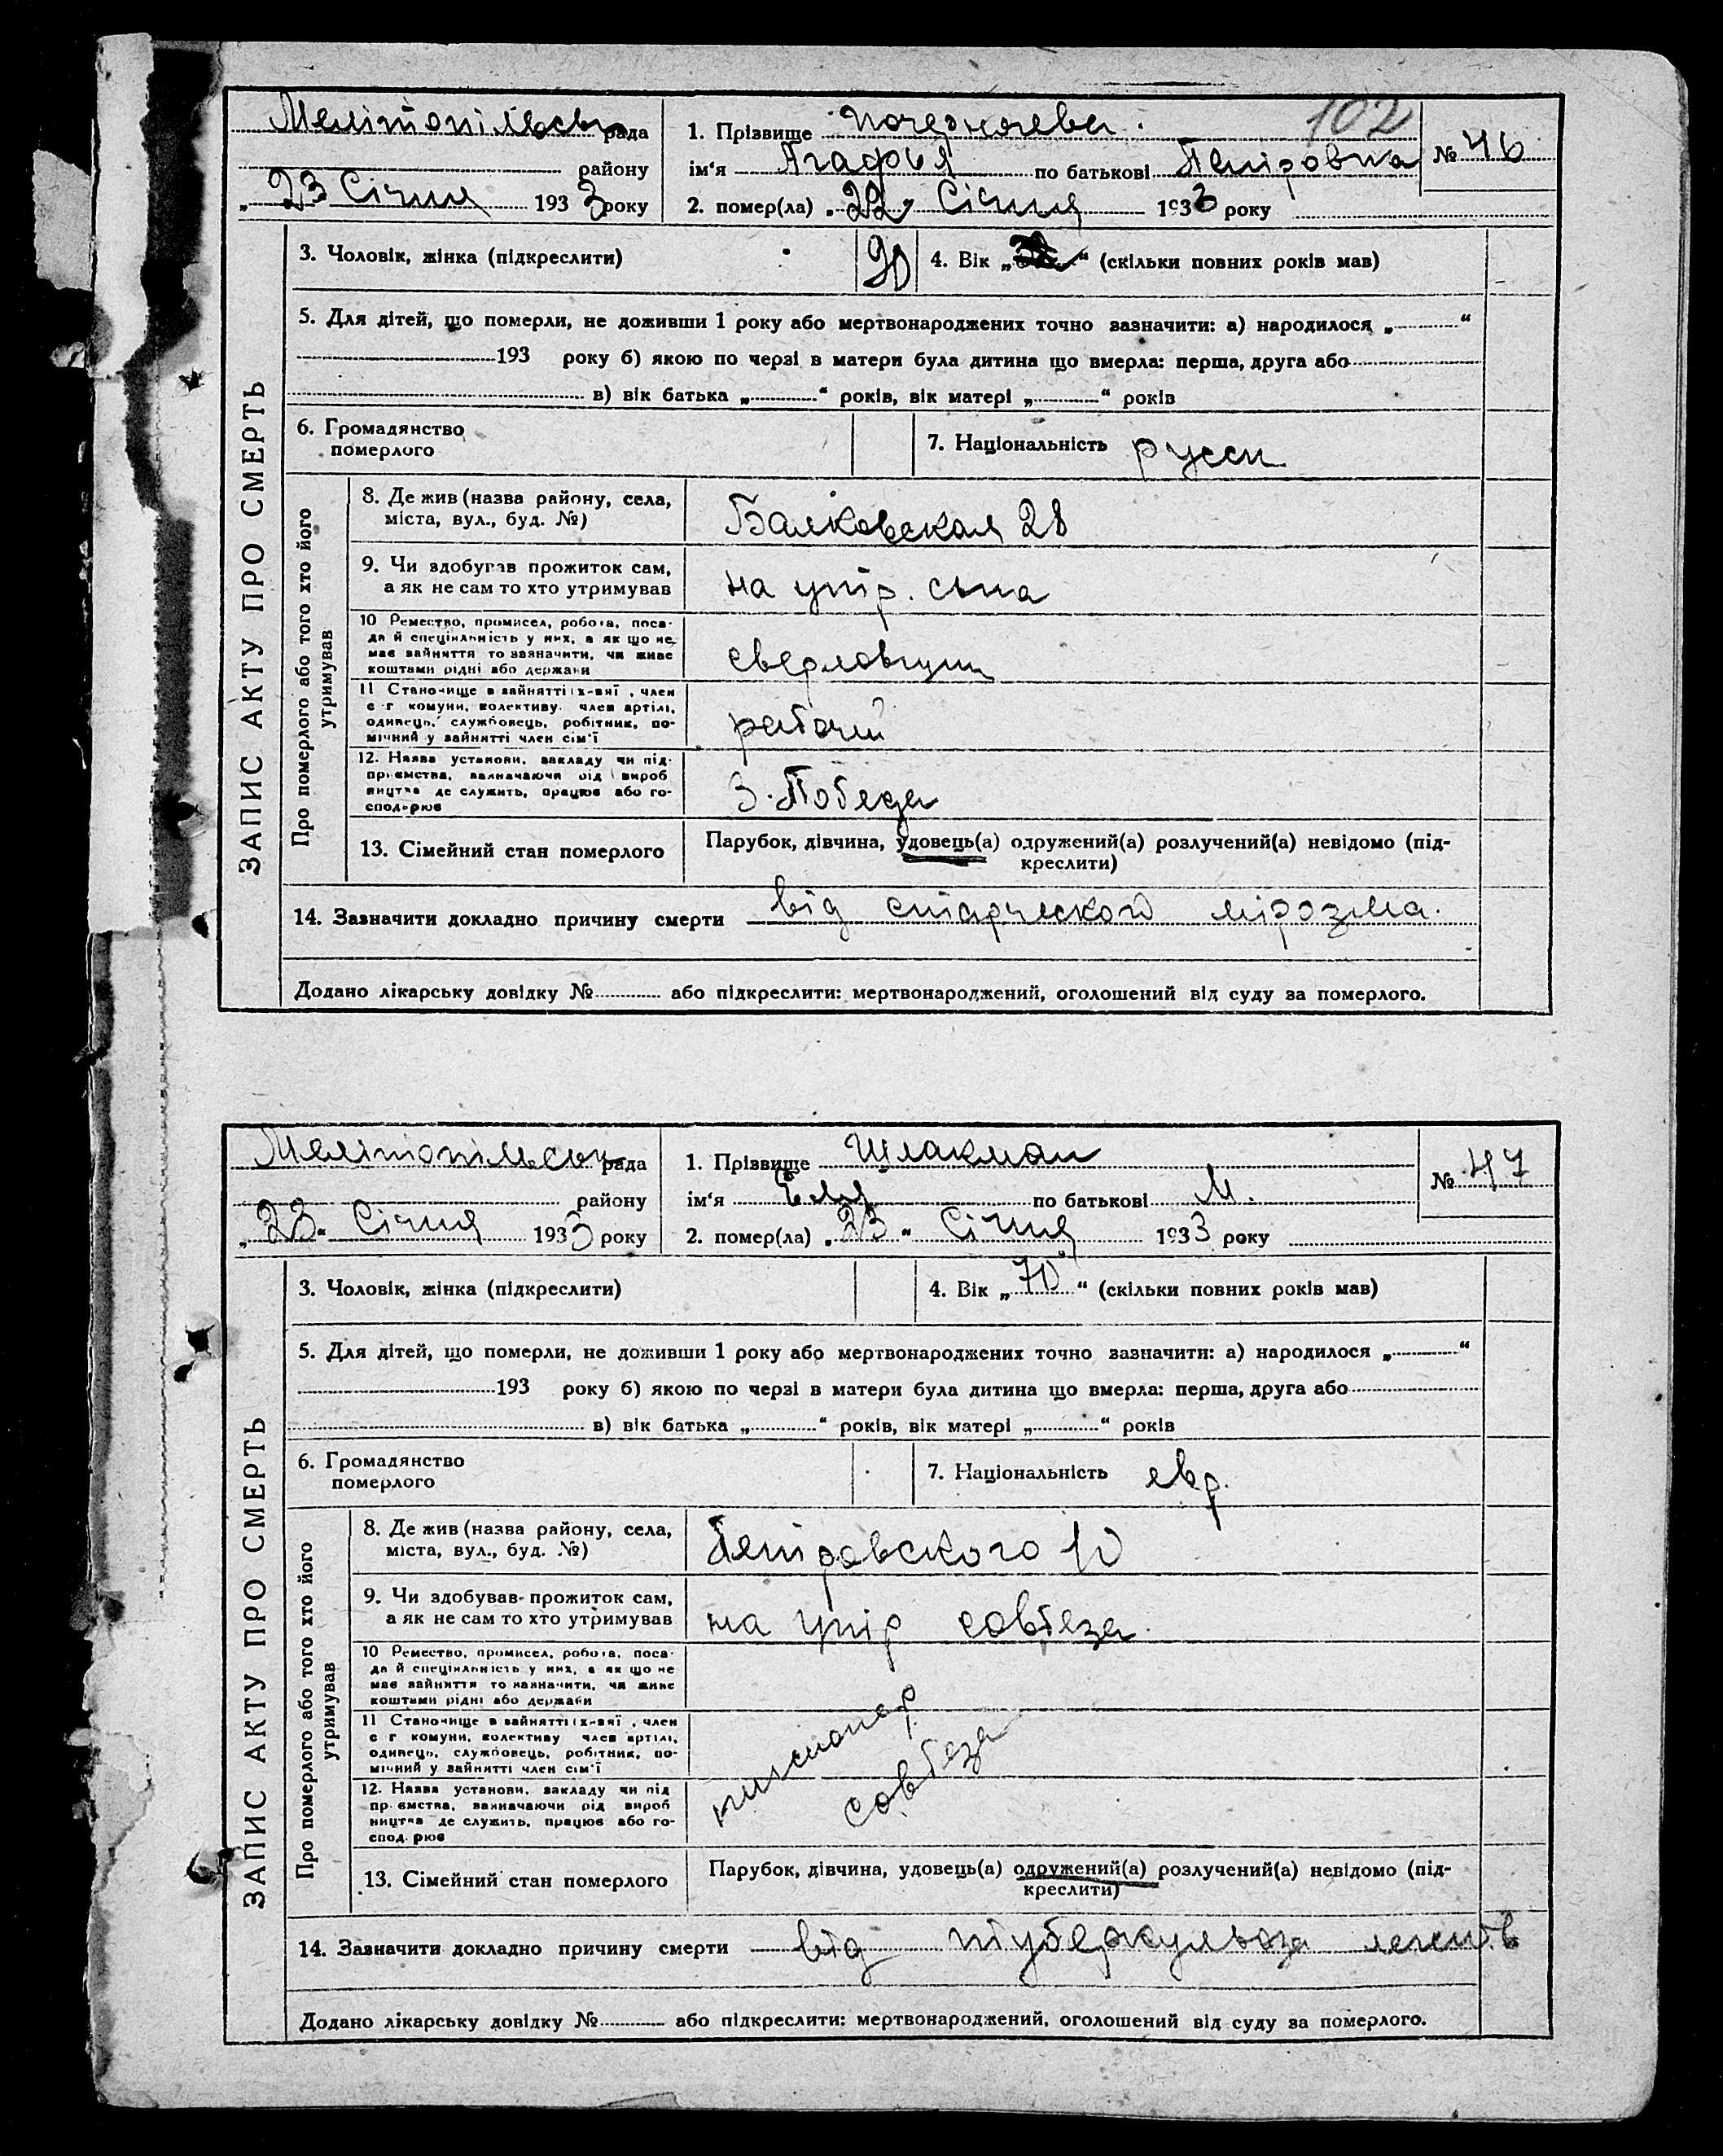 102
Мелітопільськ рада
району
„ 23 Січня 1933 року
1. Прізвище
ім‘я Агафья по батькові Петровна
2. помер(ла) „ 22 „ Січня 1933 року
№ 46
ЗАПИС АКТУ ПРО СМЕРТЬ
3. Чоловік, жінка (підкреслити)
90
4. Вік „ “ (скільки повних років мав)
5. Для дітей, що померли, не доживши 1 року або мертвонароджених точно зазначити: а) народилося „ “
193 року б) якою по черзі в матери була дитина що вмерла: перша, друга або
в) вік батька „ “ років, вік матері „ “ років
6. Громадянство
померлого
7. Національність русск
Про померлого або того хто його
утримував
8. Де жив (назва району, села,
міста, вул., буд. №)
Балковская 28
9. Чи здобував прожиток сам,
а як не сам то хто утримував
на утр. сына
10 Ремество, промисел, робота, поса-
да й спеціяльність у них, а як що не
має зайняття то зазначити, чи живе
коштами рідні або держави
сверловщик
11 Становище в зайнятті (х-вяї, член
с-г комуни, колективу, член артілі,
одинець, службовець, робітник, по-
мічний у зайнятті член сім‘ї
рабочий
12. Назва установи, закладу чи під-
приємства, зазначаючи рід вироб
ництва де служить, працює або го-
сподарює
З. Победа
13. Сімейний стан померлого
Парубок, дівчина, удовець(а) одружений(а) розлучений(а) невідомо (під-
креслити)
14. Зазначити докладно причину смерти від старческого мірозма.
Додано лікарську довідку № або підкреслити: мертвонароджений, оголошений від суду за померлого.
Мелітопільськ рада
району
„ 23 „ Січня 1933 року
1. Прізвище Шлакман
ім‘я по батькові М.
2. помер(ла) „ 23 „ Січня 1933 року
№ 47
ЗАПИС АКТУ ПРО СМЕРТЬ
3. Чоловік, жінка (підкреслити)
4. Вік „ 70 “ (скільки повних років мав)
5. Для дітей, що померли, не доживши 1 року або мертвонароджених точно зазначити: а) народилося „ “
193 року б) якою по черзі в матери була дитина що вмерла: перша, друга або
в) вік батька „ “ років, вік матері „ “ років
6. Громадянство
померлого
7. Національність евр.
Про померлого або того хто його
утримував
8. Де жив (назва району, села,
міста, вул., буд. №)
Петровского 10
9. Чи здобував прожиток сам,
а як не сам то хто утримував
на утр собеза.
10 Ремество, промисел, робота, поса-
да й спеціяльність у них, а як що не
має зайняття то зазначити, чи живе
коштами рідні або держави
11 Становище в зайнятті (х-вяї, член
с г комуни, колективу член артілі,
одинець, службовець, робітник, по-
мічний у зайнятті член сім‘ї
12. Назва установи, закладу чи під
приємства, зазначаючи рід вироб
ництва де служить, працює або го-
сподарює
пенсионер
собеза
13. Сімейний стан померлого
Парубок, дівчина, удовець(а) одружений(а) розлучений(а) невідомо (під-
креслити)
14. Зазначити докладно причину смерти від туберкульоза легенів
Додано лікарську довідку № або підкреслити: мертвонароджений, оголошений від суду за померлого.